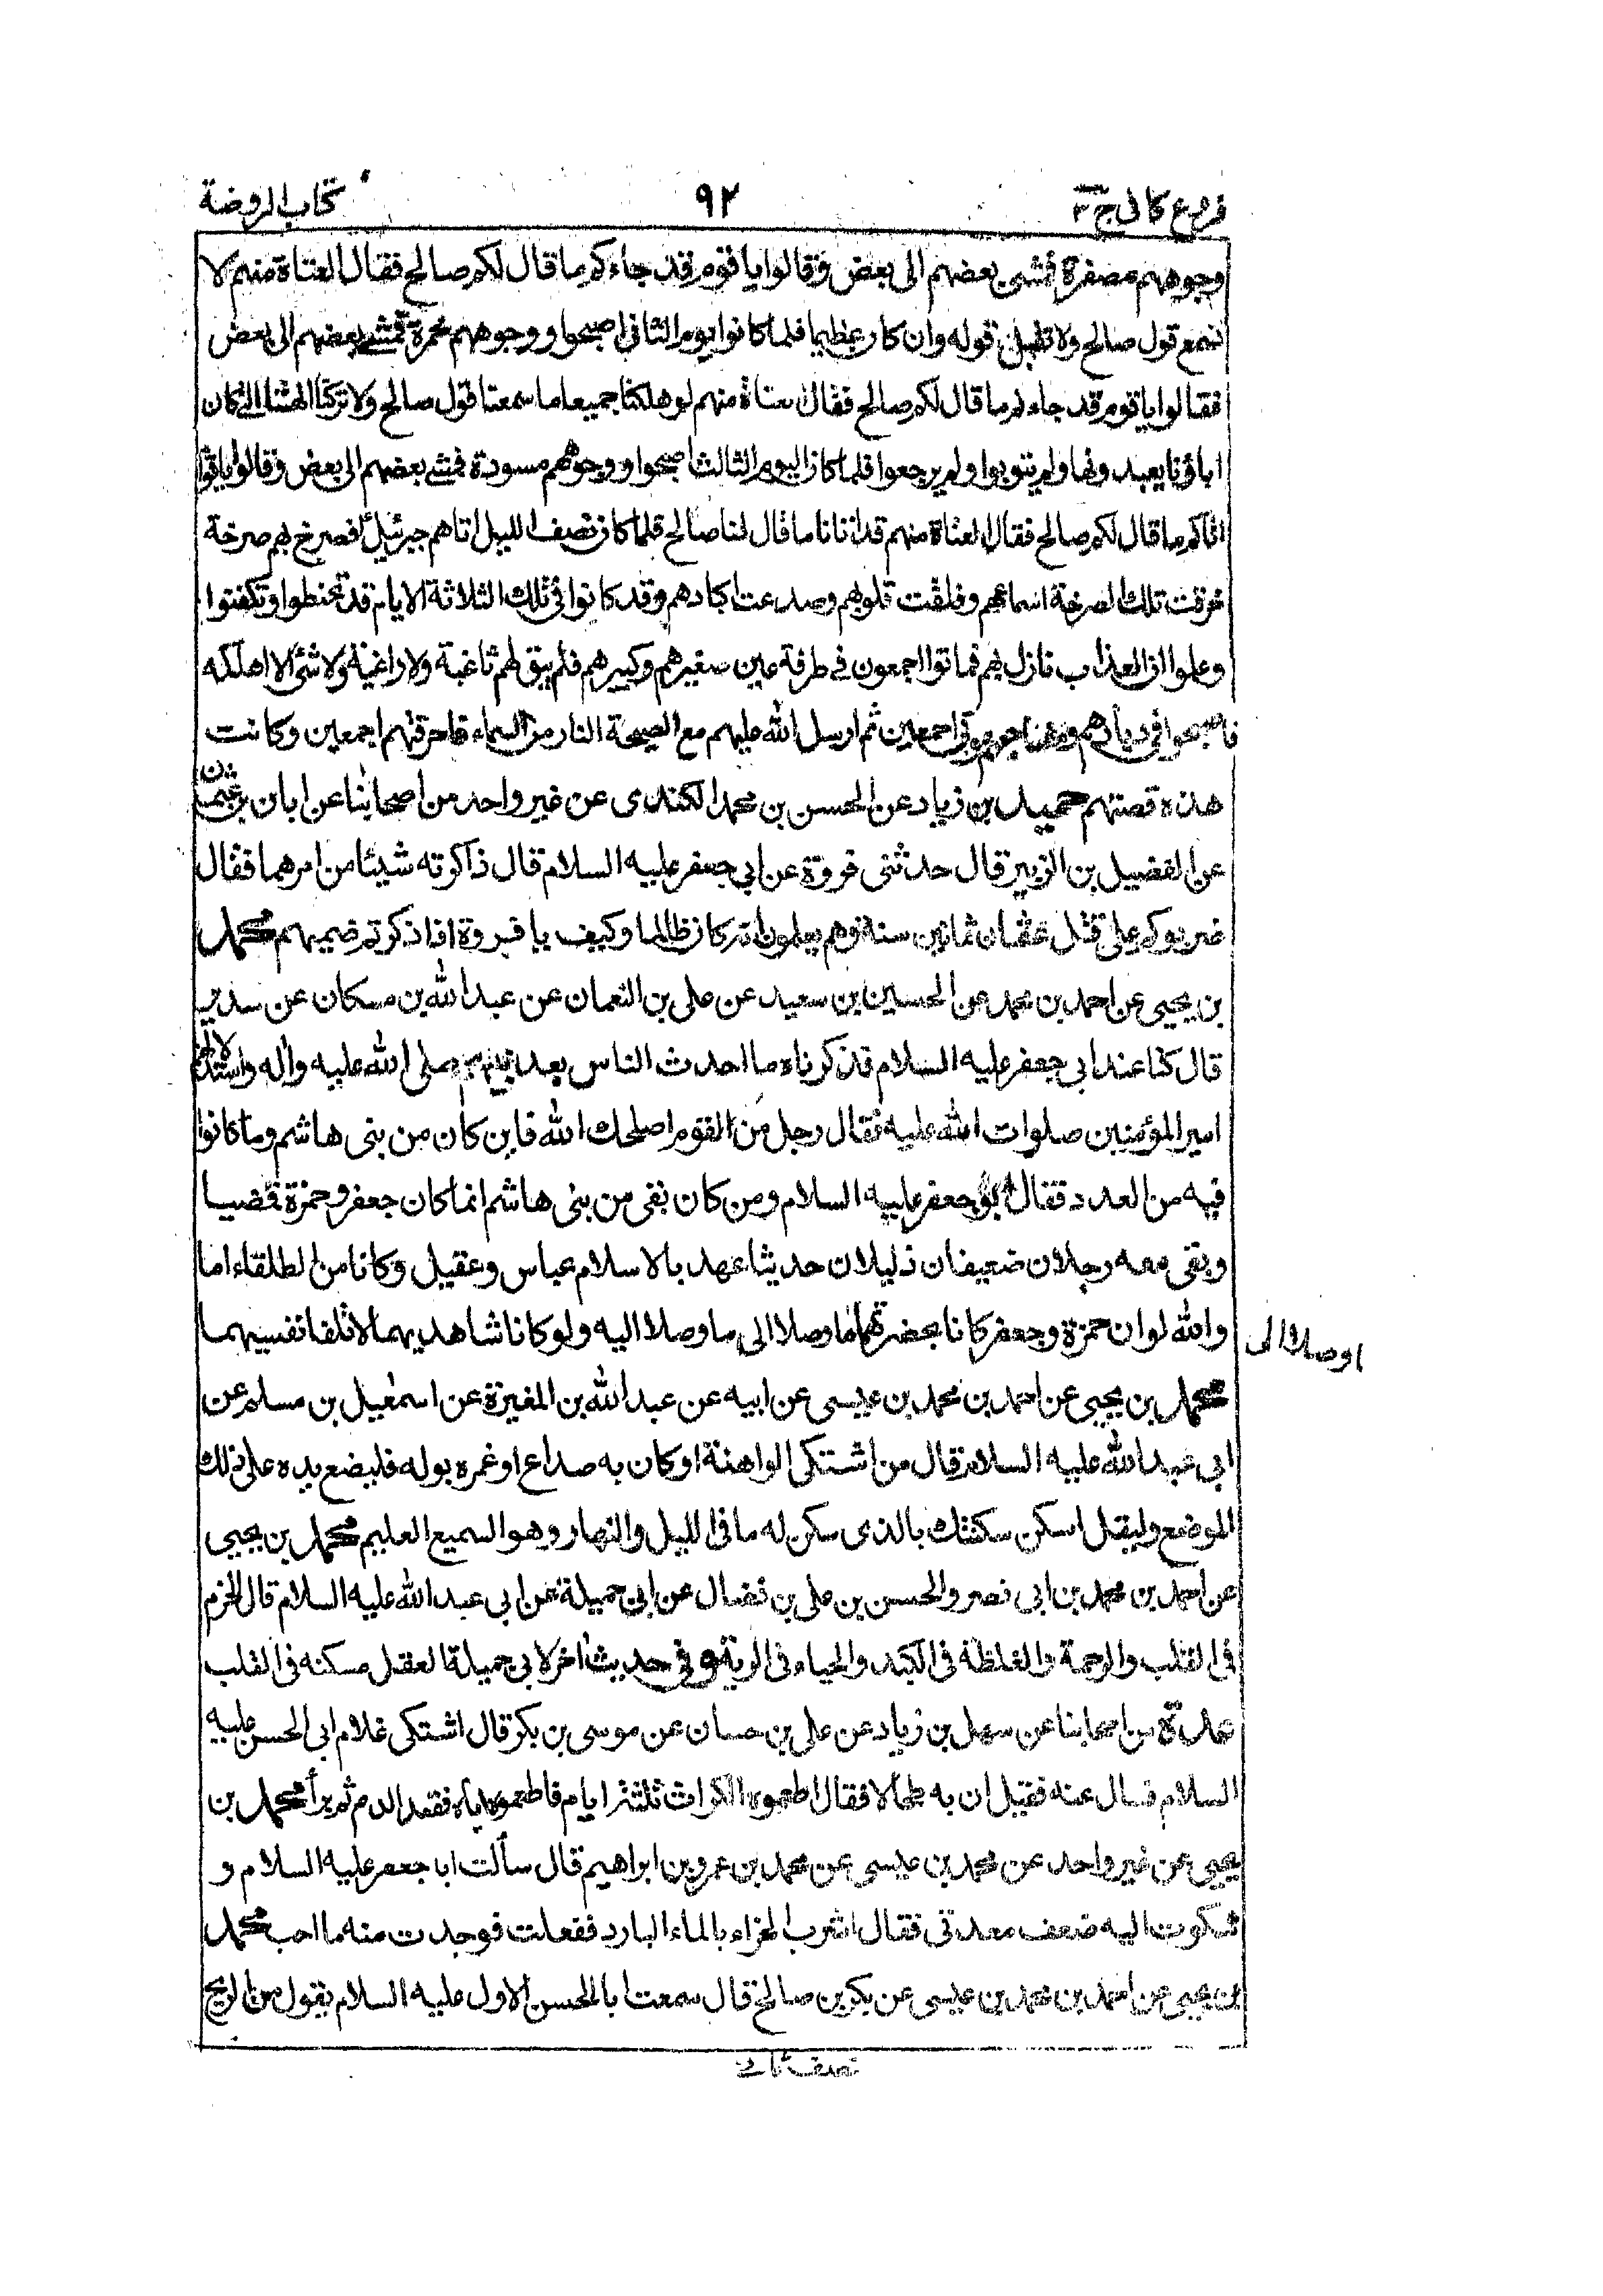 فروع كافى ج ٣ ٩٢ كتاب الروضة
وجوههم مصفرة فمشى بعضهم الى بعض وقالوا يا قوم قد جاءكم ما قال لكم صالح فقال العتاة منهم لا
نسمع قول صالح ولا نقبل قوله وان كان عظيما فلما كانوا يوم الثانى اصبحوا ووجوههم محمرة فمشى بعضهم الى بعض
فقالوا يا قوم قد جاءكم ما قال لكم صالح فقال العتاة منهم لو هلكنا جميعا ما سمعنا قول صالح ولا تركنا الهتنا التى كان
اباؤنا يعبدونها ولم يتوبوا ولم يرجعوا فلما كان اليوم الثالث اصبحوا ووجوههم مسودة فمشى بعضهم الى بعض وقالوا يا قوم
اتاكم ما قال لكم صالح فقال العتاة منهم قد اتانا ما قال لنا صالح فلما كان نصف الليل اتاهم جبرئيل فصرخ بهم صرخة
خرقت تلك الصرخة اسماعهم وفلقت قلوبهم وصدعت اكبادهم وقد كانوا فى تلك الثلاثة الايام قد تحنطوا وتكفنوا
وعلموا ان العذاب نازل بهم فماتوا اجمعون فى طرفة عين صغيرهم وكبيرهم فلم يبق لهم ثاغية ولا راغية ولا شئ الا اهلكه
فاصبحوا فى ديارهم ومضاجعهم موتى اجمعين ثم ارسل الله عليهم مع الصيحة النار من السماء فاحرقتهم اجمعين وكانت
هذه قصتهم حميد بن زياد عن الحسن بن محمد الكندى عن غير واحد من اصحابنا عن ابان بن عثمن
عن الفضيل بن الزبير قال حدثنى فروة عن ابي جعفر عليه السلام قال ذاكرته شيئا من امرهما فقال
ضربوكم على قتل عثمان ثمانين سنة وهم يعلمون انه كان ظالما وكيف يا فروة اذا ذكرتم صنميهم محمد
بن يحيى عن احمد بن محمد عن الحسين بن سعيد عن على بن النعمان عن عبد الله بن مسكان عن سدير
قال كنا عند ابي جعفر عليه السلام فذكرنا ما احدث الناس بعد نبيهم صلى الله عليه واله واستذلالهم
امير المؤمنين صلوات الله عليه فقال رجل من القوم اصلحك الله فاين كان من بنى هاشم وما كانوا
فيه من العدد فقال ابو جعفر عليه السلام ومن كان بقى من بنى هاشم انما كان جعفر وحمزة فمضيا
وبقى معه رجلان ضعيفان ذليلان حديثا عهد بالاسلام عباس وعقيل وكانا من الطلقاء اما
والله لو ان حمزة وجعفر كانا بحضرتهما ما وصلا الى ما وصلا اليه ولو كانا شاهديهما لاتلفا نفسيهما
او صلا الى
محمد بن يحيى عن احمد بن محمد بن عيسى عن ابيه عن عبد الله بن المغيرة عن اسمعيل بن مسلم عن
ابى عبد الله عليه السلام قال من اشتكى الواهنة او كان به صداع او غمره بوله فليضع يده على ذلك
الموضع وليقل اسكن سكنتك بالذى سكن له ما فى الليل والنهار وهو السميع العليم محمد بن يحيى
عن احمد بن محمد بن ابى نصر والحسن بن على بن فضال عن ابى جميلة عن ابى عبد الله عليه السلام قال الحزم
فى القلب والرحمة والغلظة فى الكبد والحياء فى الرية وفى حديث اخر لابى جميلة العقل مسكنه فى القلب
عدة من اصحابنا عن سهل بن زياد عن على بن حسان عن موسى بن بكر قال اشتكى غلام ابى الحسن عليه
السلام فسال عنه فقيل ان به طحالا فقال اطعموه الكراث ثلثة ايام فاطعموه اياه فقعد الدم ثم برأ محمد بن
يحيى عن غير واحد عن محمد بن عيسى عن محمد بن عمرو بن ابراهيم قال سألت ابا جعفر عليه السلام و
شكوت اليه ضعف معدتى فقال اشرب الحزاء بالماء البارد ففعلت فوجدت منه ما احب محمد
بن يحيى عن احمد بن محمد بن عيسى عن بكر بن صالح قال سمعت ابا الحسن الاول عليه السلام يقول من الريح
نصف ثانى